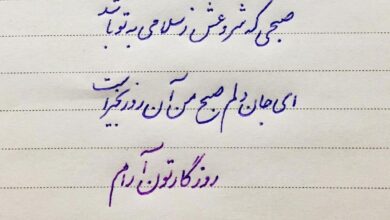 صبحی که شروعش ز سلامی به تو باشد
ای جان دلم صبح من آن روز بخیر است
روزگارتون آرام